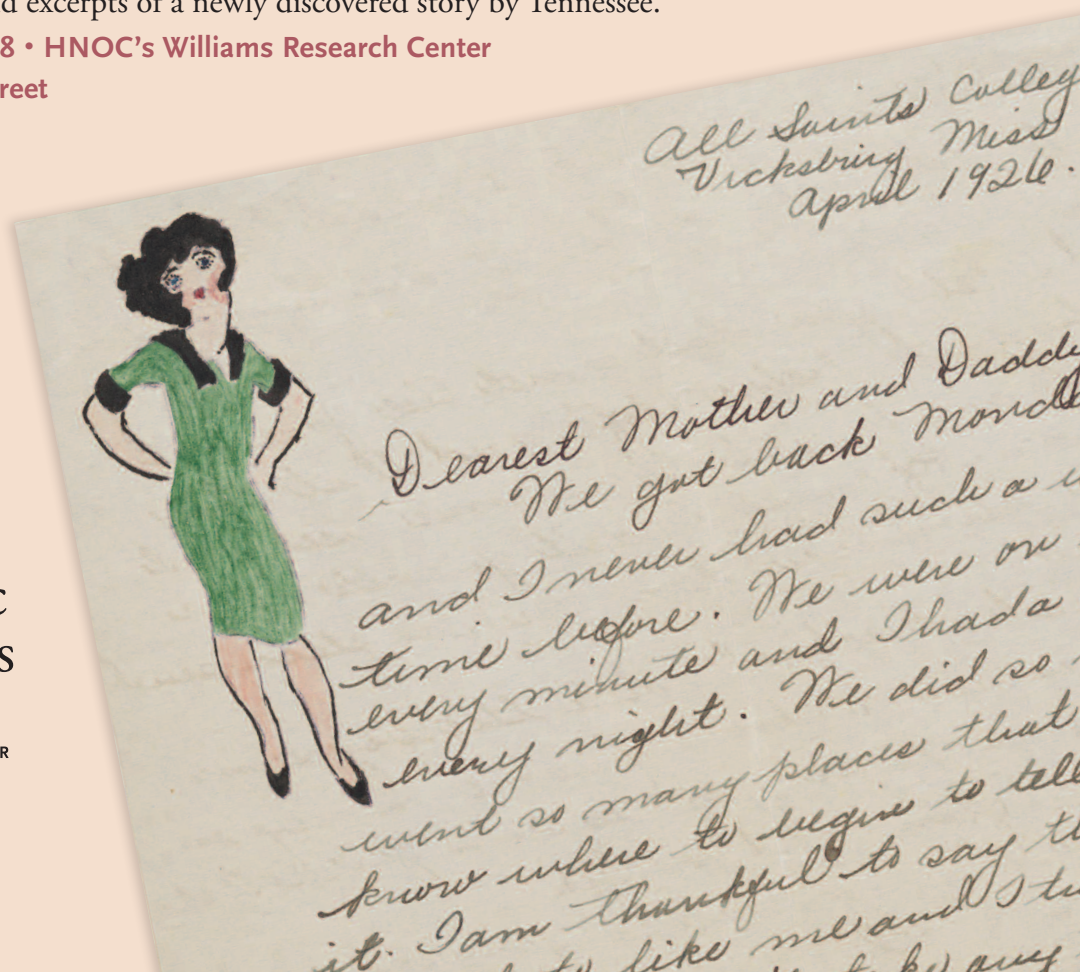 d excerpts of a newly discovered story by Tennessee.
8 • HNOC's Williams Research Center
reet
All Saints Colleg
Vicksburg Miss
April 1926.
Dearest Mother and Daddy
We got back Mond
and I never had such a
time before. We were on
every minute and I had a
every night. We did so
went so many places that
know where to begin to tell
it. I am thankful to say th
to like me and I tu
any
C
S
R